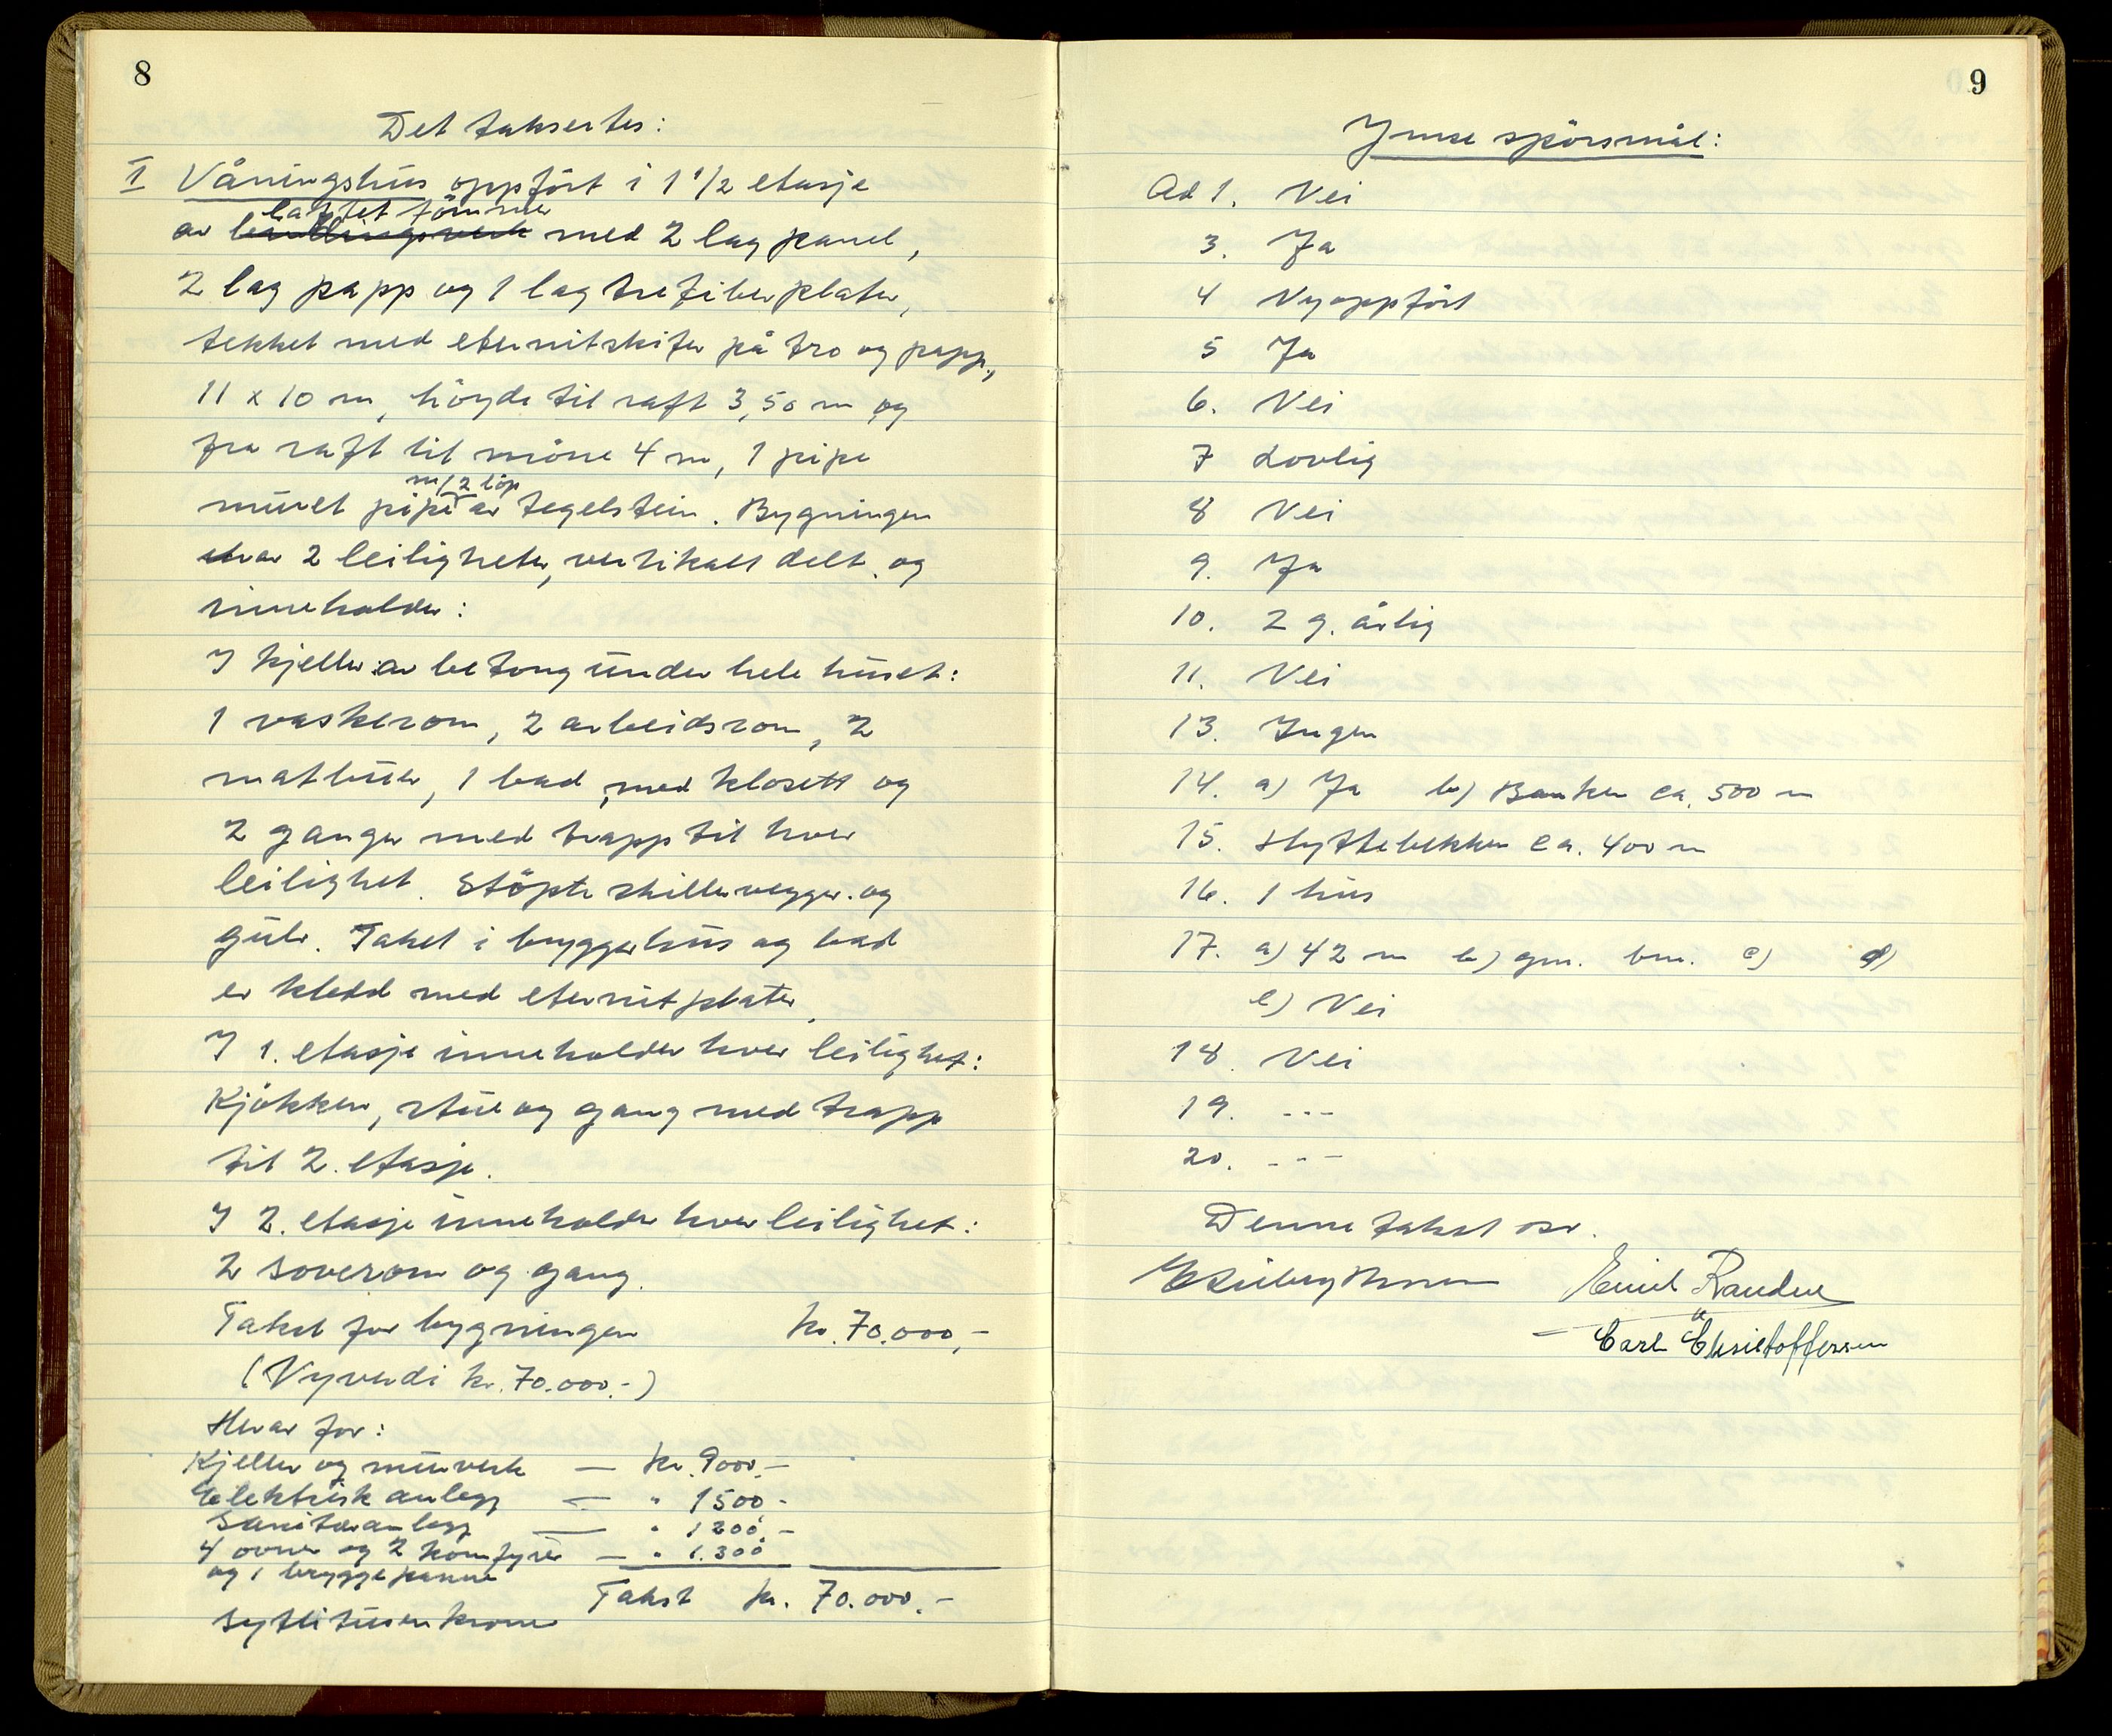 8
Det taksertes:
I Våningshus oppført i 1 1/2 etasje
laftet tömmer
av bindingsverk med 2 lag panel,
2 lag papp og 1 lag trefiberplater,
tekket med eternitskifer på tro og papp,
11 x 10 m, höyde til raft 3,50 m og
fra raft til möne 4 m, 1 pipe
m/2 löp
muret pipe av tegelstein. Bygningen
har 2 leiligheter, vertikalt delt og
inneholder:
I kjeller av betong under hele huset:
1 vaskerom, 2 arbeidsrom, 2
matbuer, 1 bad med klosett og
2 ganger med trapp til hver
leilighet. Stöpte skillevegger og
gulv. Taket i bryggerhus og bad
er kledd med eternitplater.
I 1. etasje inneholder hver leilighet:
Kjökken, stue og gang med trapp
til 2. etasje.
I 2. etasje inneholder hver leilighet:
2 soverom og gang.
Takst for bygningen kr. 70.000,-
(Nyverdi kr. 70.000.-)
Herav for:
Kjeller og murverk — kr. 9000.-
Elektrisk anlegg — " 1500.-
Sanitæranlegg — " 1200.-
4 ovner og 2 komfyrer — " 1.300
og 1 bryggepanne
Takst kr. 70.000.-
Sytti tusen kroner
9
Ymse spörsmål:
Ad 1. Nei
3. Ja
4 Nyoppfört
5 Ja
6. Nei
7 Lovlig
8 Nei
9. Ja
10. 2 g. årlig
11. Nei
13. Ingen
14. a) Ja b) Banken ca. 500 m
15. Hyttebekken ca. 400 m
16. 1 hus
17. a) 42 m b) gm. bm. c) d)
e) Nei
18. Nei
19. ---
20. ---
Denne takst osv.
Emil Randen
Carl Christoffersen